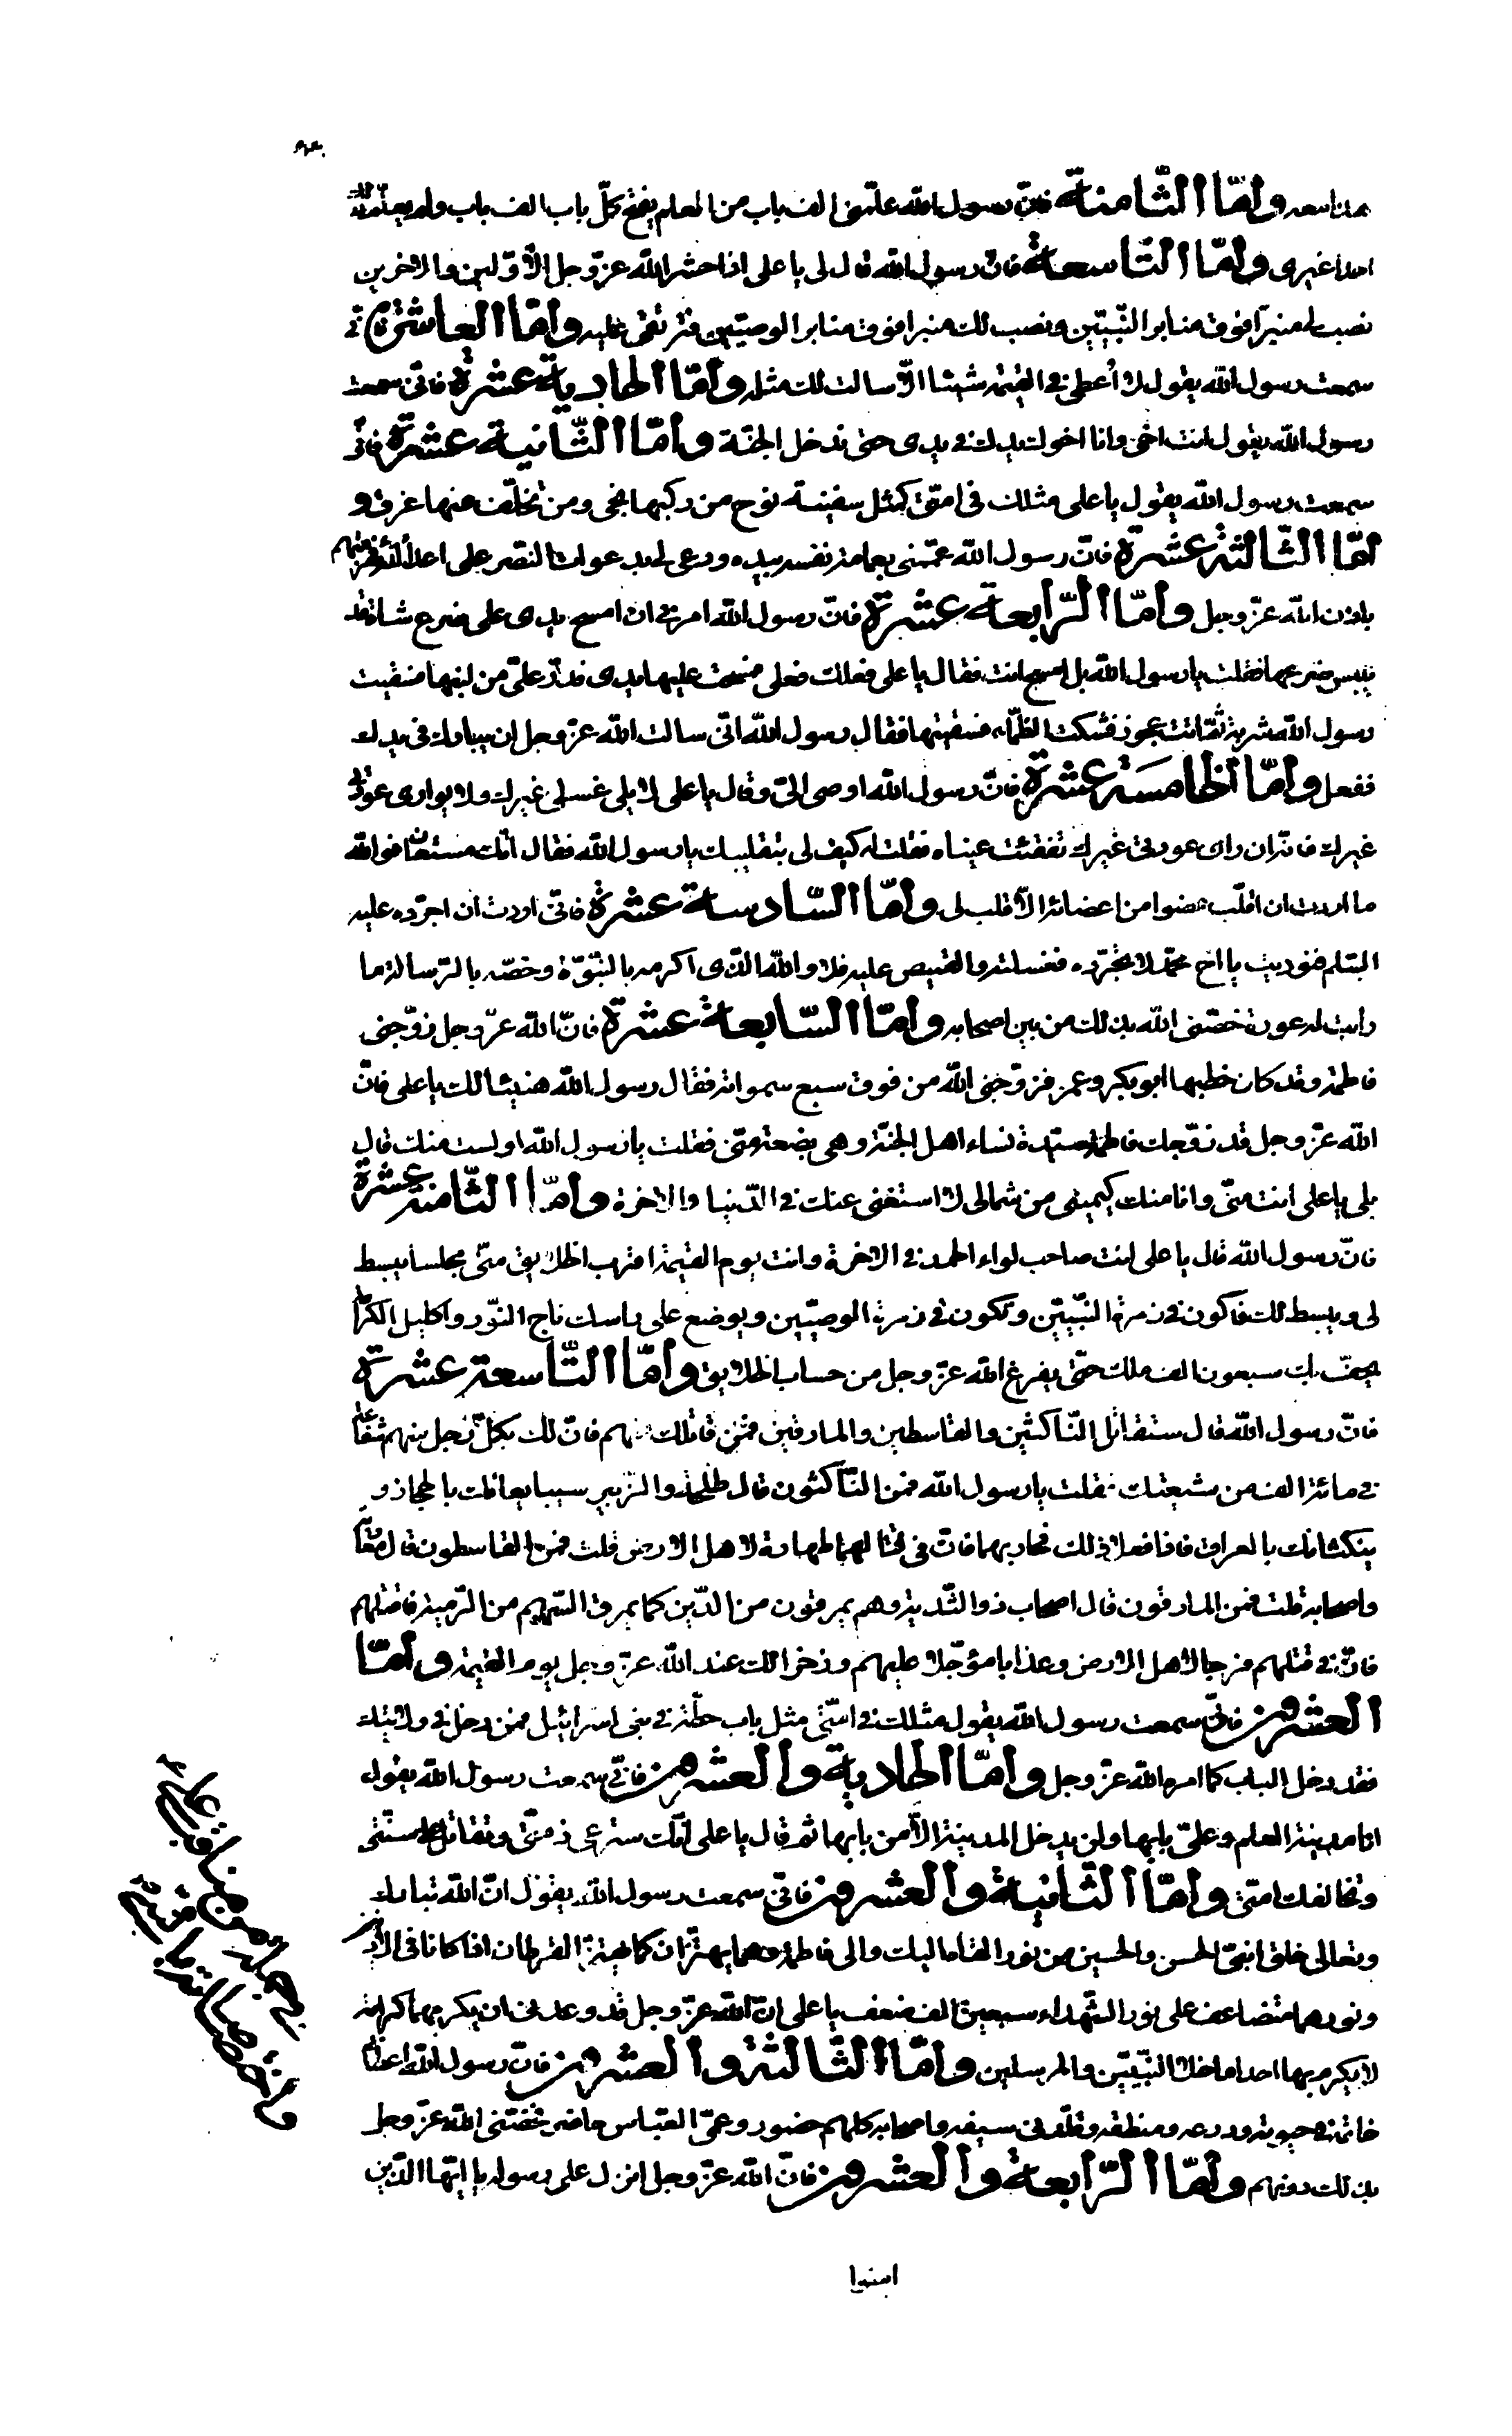 وامّا الثّامنة فانّ رسول الله علّمنى الف باب من العلم يفتح كلّ باب الف باب ولم يعلّم ذلك
احدا غيرى وامّا التّاسعة فانّ رسول الله قال لى يا على اذا حشر الله عزّ وجل الأوّلين والاخرين
نصب لى منبرا فوق منابر النّبيّين ونصب لك منبرا فوق منابر الوصيّين فترتقى عليه وامّا العاشرة فانّى
سمعت رسول الله يقول لا أعطى فى القيمة شيئا الاّ سالت لك مثله وامّا الحادية عشرة فانّى سمعت
رسول الله يقول انت اخى وانا اخوك يدك فى يدى حتى تدخل الجنّة وامّا الثّانية عشرة فانّى
سمعت رسول الله يقول يا على مثلك فى امتى كمثل سفينة نوح من ركبها نجى ومن تخلّف عنها غرق و
امّا الثّالثة عشرة فانّ رسول الله عمّمنى بعمامة نفسه بيده ودعى لى بدعوات النّصر على اعداء الله فهزمتهم
باذن الله عزّ وجل وامّا الرّابعة عشرة فانّ رسول الله امرنى ان امسح يدى على ضرع شاة قد
يبس ضرعها فقلت يا رسول الله بل امسح انت فقال يا على فعلك فعلى فمسحت عليها يدى فدرّ علىّ من لبنها فسقيت
رسول الله شربة ثمّ اتت عجوز فشكت الظّماء فسقيتها فقال رسول الله انّى سالت الله عزّ وجل ان يبارك فى يدك
ففعل وامّا الخامسة عشرة فانّ رسول الله اوصى الىّ وقال يا على لا يلى غسلى غيرك ولا يوارى عورتى
غيرك فانّه ان راى عورتى غيرك تفقئت عيناه فقلت له كيف لى بتقليبك يا رسول الله فقال انّك ستعان فوالله
ما اردت ان اقلّب عضوا من اعضائه الاّ قلب لى وامّا السّادسة عشرة فانّى اردت ان اجرّده عليه
السّلم فنوديت يا اخ محمّد لا تجرّده فغسلته والقميص عليه فلا والله الّذى اكرمه بالنّبوّة وخصّه بالرّسالة ما
رايت له عورة خصّنى الله بذلك من بين اصحابه وامّا السّابعة عشرة فانّ الله عزّ وجل زوّجنى
فاطمة وقد كان خطبها ابو بكر وعمر فزوّجنى الله من فوق سبع سمواته فقال رسول الله هنيئا لك يا على فانّ
الله عزّ وجل قد زوّجك فاطمة سيّدة نساء اهل الجنّة وهى بضعة منّى فقلت يا رسول الله اولست منك قال
بلى يا على انت منّى وانا منك كيمينى من شمالى لا استغنى عنك فى الدّنيا والاخرة وامّا الثّامنة عشرة
فانّ رسول الله قال يا على انت صاحب لواء الحمد فى الاخرة وانت يوم القيمة اقرب الخلايق منّى مجلسا يبسط
لى ويبسط لك فاكون فى زمرة النّبيّين وتكون فى زمرة الوصيّين ويوضع على راسك تاج النّور واكليل الكرامة
يحفّ بك سبعون الف ملك حتّى يفرغ الله عزّ وجل من حساب الخلايق وامّا التّاسعة عشرة
فانّ رسول الله قال ستقاتل النّاكثين والقاسطين والمارقين فمن قاتلك منهم فانّ لك بكلّ رجل منهم شفاعة
فى مائة الف من شيعتك فقلت يا رسول الله فمن النّاكثون قال طلحة والزّبير سيبايعانك بالحجاز و
ينكثانك بالعراق فاذا فعلا ذلك فحاربهما فانّ فى قتالهما طهارة لاهل الارض قلت فمن القاسطون قال معاوية
واصحابه قلت فمن المارقون قال اصحاب ذو الثّدية وهم يمرقون من الدّين كما يمرق السّهم من الرّمية فاقتلهم
فانّ فى قتلهم فرجا لاهل الارض وعذابا مؤجّلا عليهم وذخرا لك عند الله عزّ وجل يوم القيمة وامّا
العشرون فانّى سمعت رسول الله يقول مثلك فى امّتى مثل باب حطّة فى بنى اسرائيل فمن دخل فى ولايتك
فقد دخل الباب كما امره الله عزّ وجل وامّا الحادية والعشرون فانّى سمعت رسول الله يقول
انا مدينة العلم وعلىّ بابها ولن يدخل المدينة الاّ من بابها ثم قال يا على انّك سترعى ذمّتى وتقاتل على سنّتى
وتخالفك امتى وامّا الثّانية والعشرون فانّى سمعت رسول الله يقول انّ الله تبارك
وتعالى خلق ابنىّ الحسن والحسين من نور القاه اليك والى فاطمة وهما يهتزّان كما يهتزّ القرطان اذا كانا فى الاذنين
ونورهما متضاعف على نور الشّهداء سبعين الف ضعف يا على انّ الله عزّ وجل قد وعدنى ان يكرمهما كرامة
لا يكرم بها احدا ما خلا النّبيّين والمرسلين وامّا الثّالثة والعشرون فانّ رسول الله اعطانى
خاتمه فى حيوته ودرعه ومنطقه وقلّدنى سيفه واصحابه كلهم حضور وعمّى العبّاس حاضر فخصّنى الله عزّ وجل
بذلك دونهم وامّا الرّابعة والعشرون فانّ الله عزّ وجل انزل على رسوله يا ايّها الّذين
امنوا